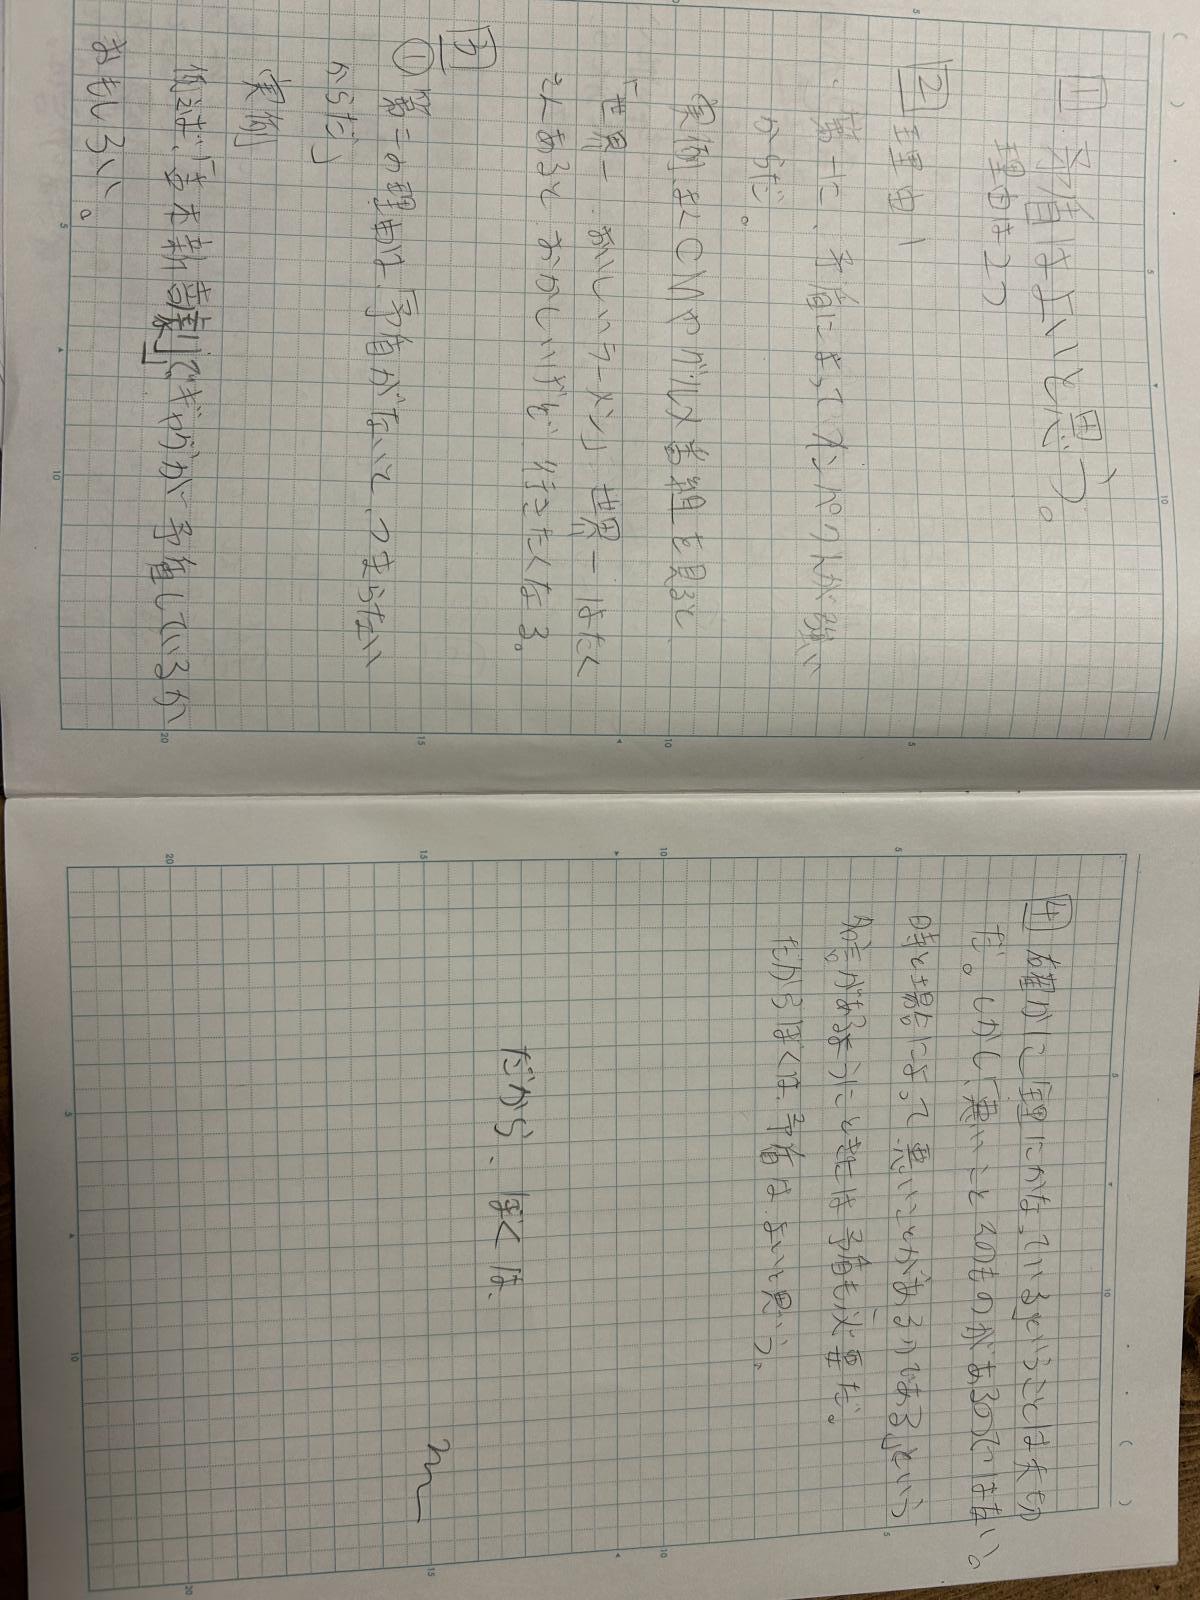 1 予盾はよいと思う。
理由は2つ
2 理由1
・第一に、予盾によってインパクトが強い
からだ。
実例はCMやグルメ番組を見ると
「世界一おいしいラーメン」世界一はたく
さんあるとおかしいけど行きたくなる。
3
①第二の理由は、「予盾がないと、つまらない
からだ」
実例
例えば、「吉本新喜劇」でギャグが予盾しているか
おもしろい。
4 確かに「理にかなっているということは大切
だ。しかし「悪いことそのものがあるのではない。
時と場によって悪いことがあるのである」という
名言があるようにときには予盾も必要だ。
だからぼくは、予盾はよいと思う。
だから、ぼくは、